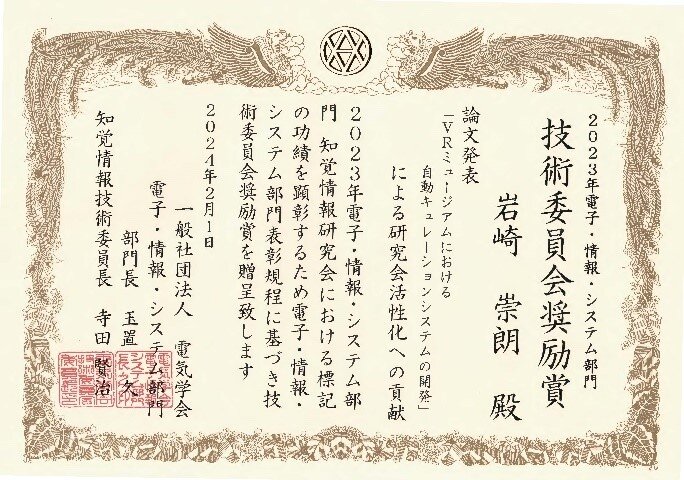 2023年電子・情報・システム部門
技術委員会奨励賞
岩崎 崇朗 殿
論文発表
「VRミュージアムにおける
自動キュレーションシステムの開発」
による研究会活性化への貢献
2023年電子・情報・システム部
門 知覚情報研究会における標記
の功績を顕彰するため電子・情報・
システム部門表彰規程に基づき技
術委員会奨励賞を贈呈致します
2024年2月1日
一般社団法人 電気学会
電子・情報・システム部門
部門長 玉置 久
知覚情報技術委員長 寺田 賢治